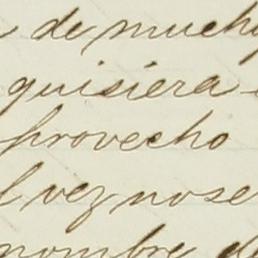 de mucho
quisiera
provecho
l vez no se
nombre